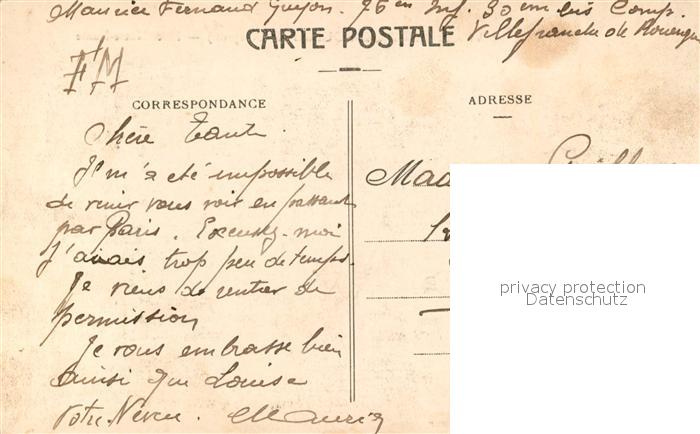 Maurice Fernand Guyon. 96em Inf. 30em bis Comp.
Villefranche de Rouergue
CARTE POSTALE
F M
CORRESPONDANCE
ADRESSE
Chère Tante.
Il m'a été impossible
de venir vous voir en passant
par Paris. Excusez-moi
j'avais trop peu de temps.
Je viens de rentrer de
permission
Je vous embrasse bien
ainsi que Louise
Votre Neveu. Maurice
Mad
privacy protection
Datenschutz